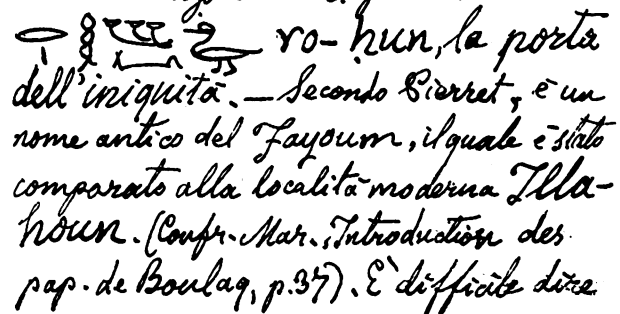 ro-ḥun, la porta
dell'iniquità. — Secondo Pierret, è un
nome antico del Fayoum, il quale è stato
comparato alla località moderna Illa-
houn. (Confr. Mar., Introduction des
pap. de Boulaq, p. 37). È difficile dire